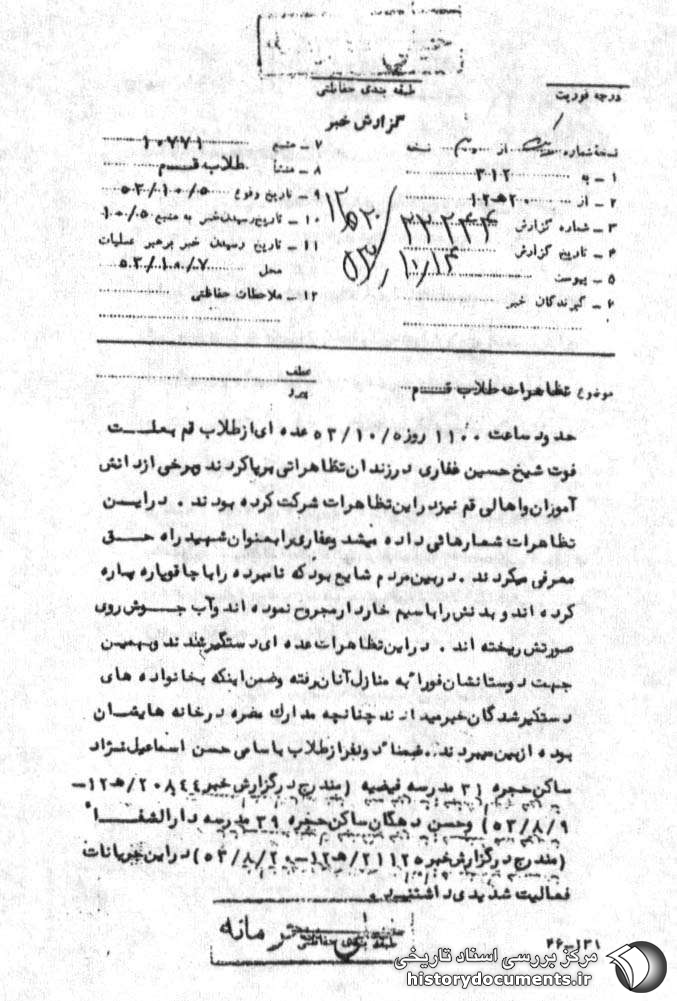 طبقه بندی حفاظتی
درجه فوریت
گزارش خبر
نسخه شماره از نسخه
۱ - به ۳۱۲
۲ - از ۲۰ ه‍ ۱۲
۳ - شماره گزارش ۲۲۲۴۴
۴ - تاریخ گزارش ۵۳/۱۰/۱۴
۵ - پیوست
۶ - گیرندگان خبر
۷ - منبع ۱۰۷۷۱
۸ - منشأ طلاب قم
۹ - تاریخ وقوع ۵۳/۱۰/۵
۱۰ - تاریخ رسیدن خبر به منبع ۱۰/۵
۱۱ - تاریخ رسیدن خبر برهبر عملیات
محل ۵۳/۱۰/۷
۱۲ - ملاحظات حفاظتی
موضوع تظاهرات طلاب قم
عطف
پیرو
حدود ساعت ۱۱۰۰ روز ۵۳/۱۰/۵ عده ای از طلاب قم بعلت
فوت شیخ حسین غفاری در زندان تظاهراتی برپا کردند و برخی از دانش
آموزان و اهالی قم نیز در این تظاهرات شرکت کرده بودند . در این
تظاهرات شعارهائی داده میشد و غفاری را بعنوان شهید راه حق
معرفی میکردند . در بین مردم شایع بود که نامبرده را با چاقو پاره پاره
کرده اند و بدنش را با سیم خاردار مجروح نموده اند و آب جوش روی
صورتش ریخته اند . در این تظاهرات عده ای دستگیر شدند و بهمین
جهت دوستانشان فورا" به منازل آنان رفته و ضمن اینکه بخانواده های
دستگیر شدگان خبر میدادند چنانچه مدارک مضره در خانه هایشان
بوده از بین میبردند . ضمنا" دو نفر از طلاب باسامی حسن اسماعیل نژاد
ساکن حجره ۳۱ مدرسه فیضیه (مندرج در گزارش خبر ۲۰۸۴۴/ه‍ ۱۲-
۵۳/۸/۹) و حسن دهگان ساکن حجره ۳۹ مدرسه دارالشفا"
(مندرج در گزارش خبر ۲۱۱۲۵/ه‍ ۱۲-۵۳/۸/۲۰) در این جریانات
فعالیت شدیدی داشتند .
طبقه بندی حفاظتی
۴۶-۱۳۱
مرکز بررسی اسناد تاریخی
historydocuments.ir